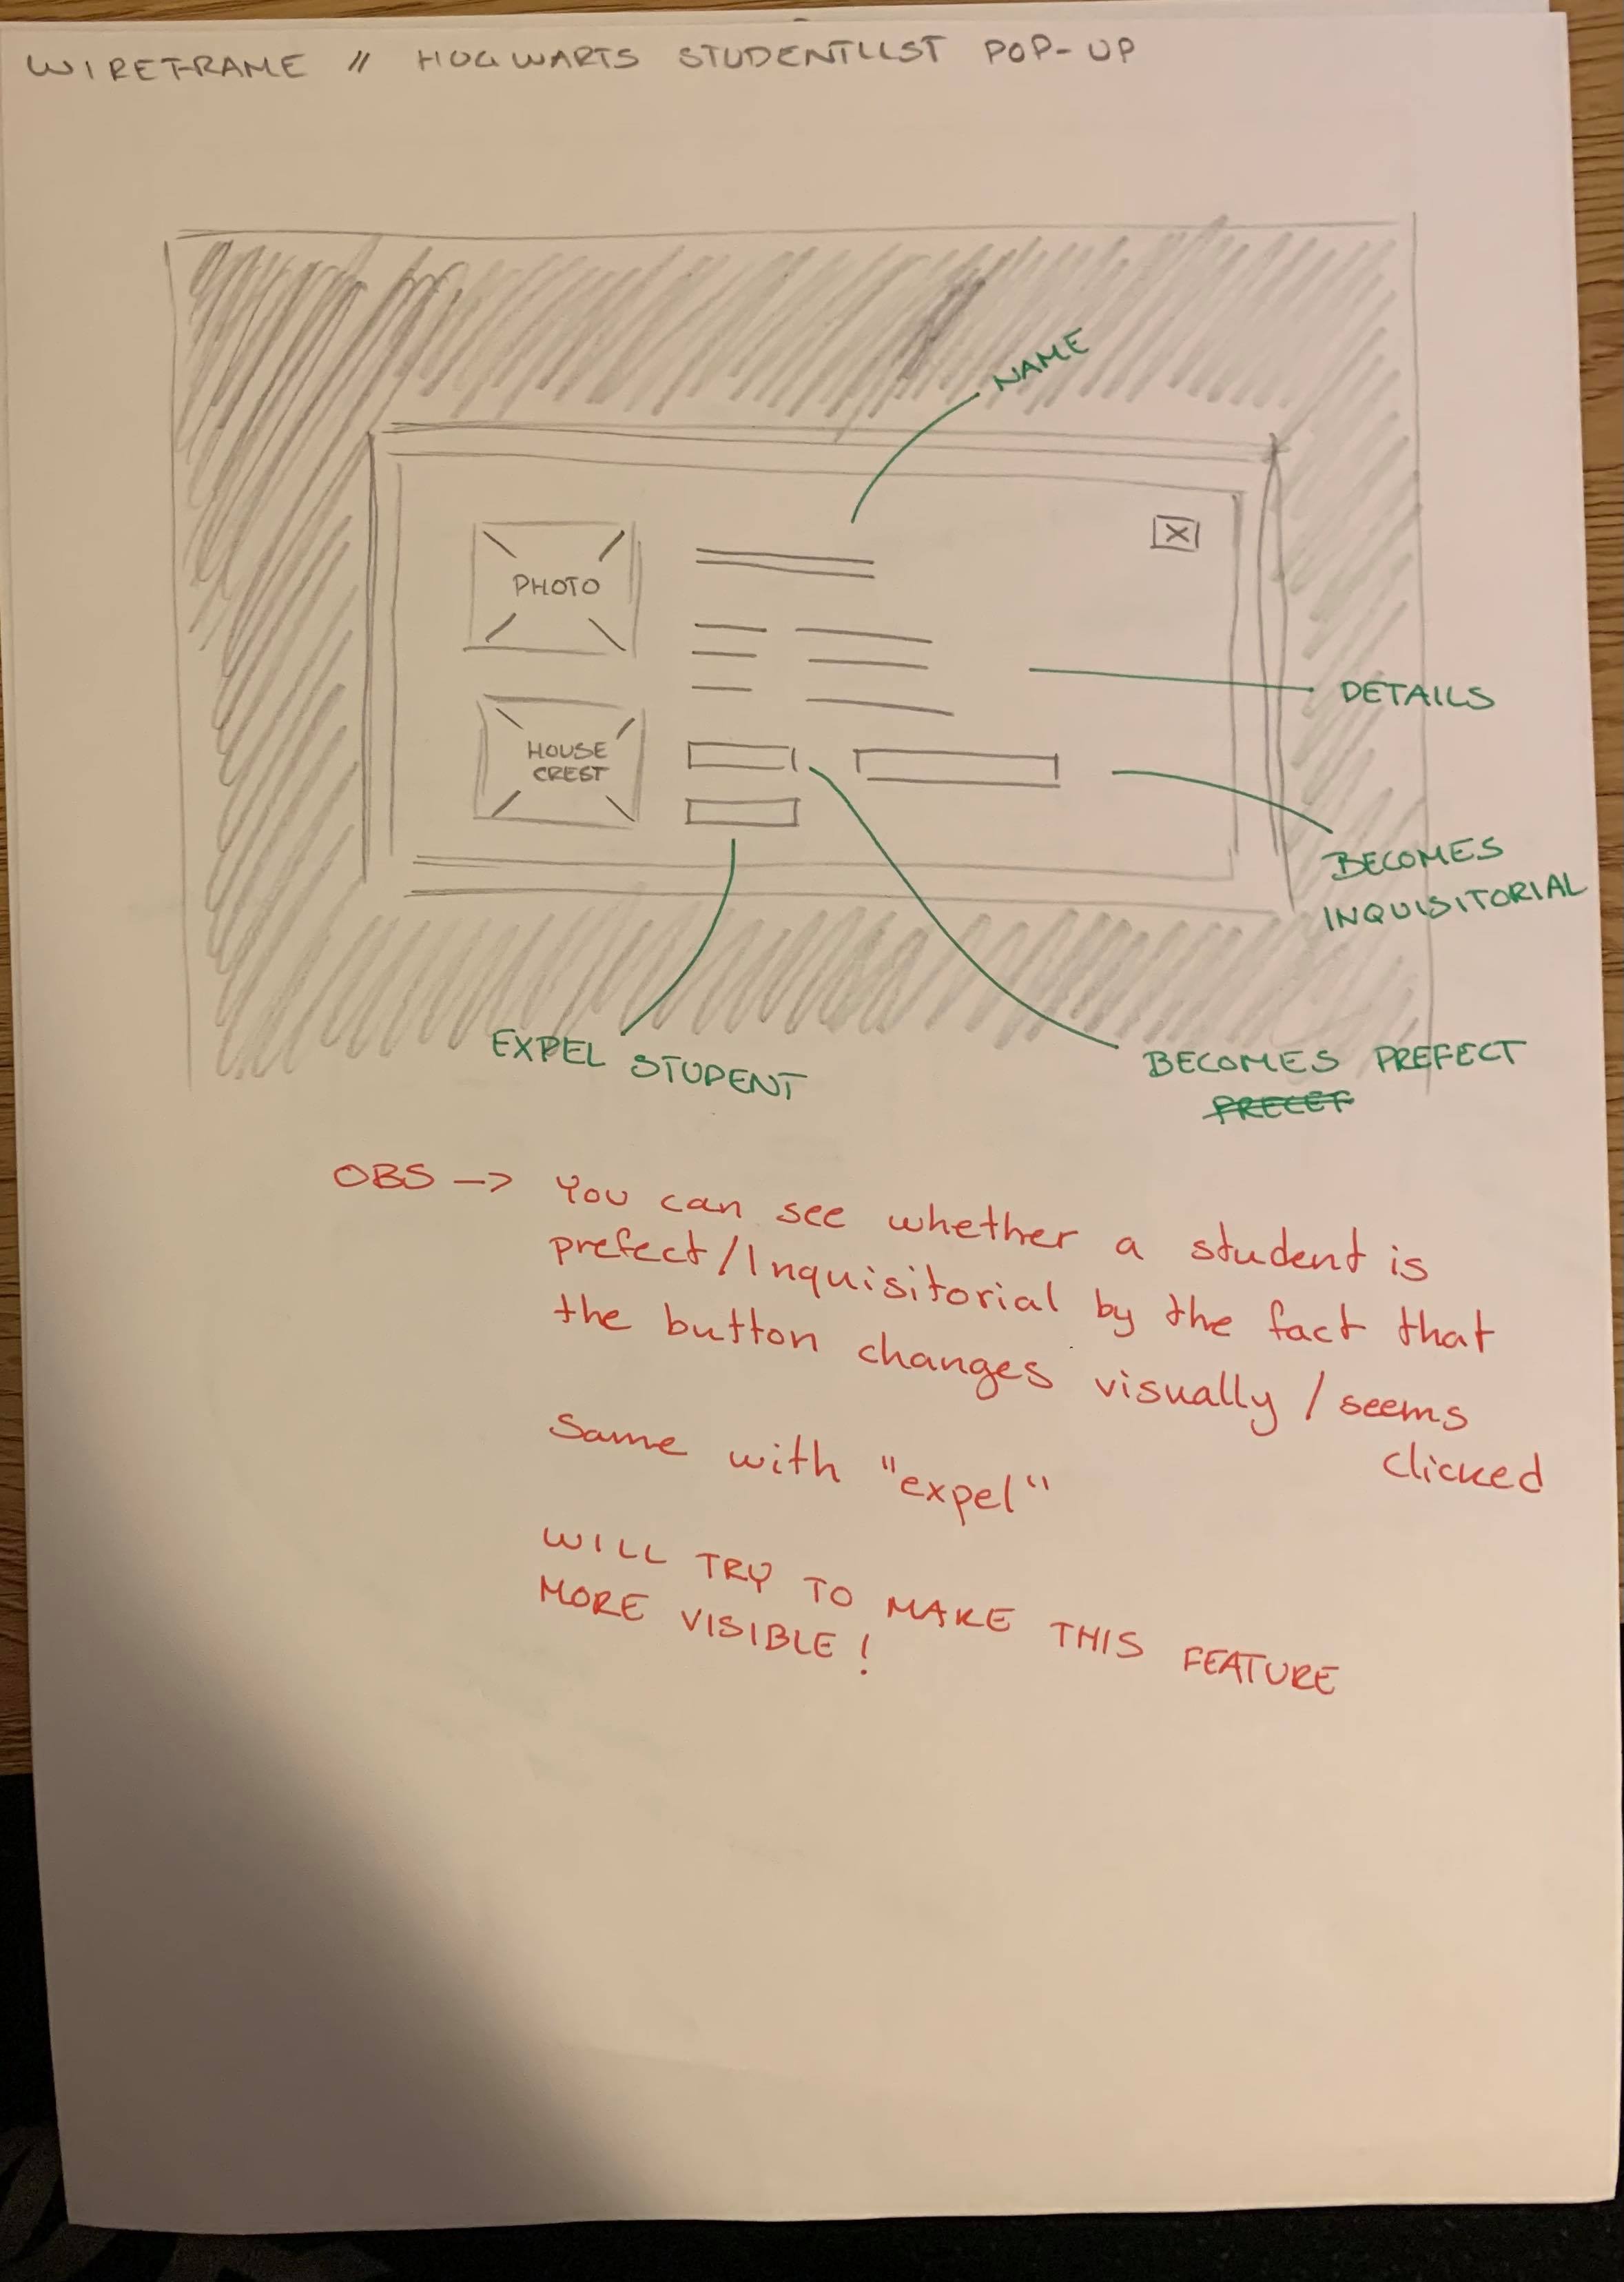 WIREFRAME // HOGWARTS STUDENTLIST POP-UP
NAME
X
PHOTO
DETAILS
HOUSE
CREST
BECOMES
INQUISITORIAL
EXPEL STUDENT
BECOMES PREFECT
OBS -> You can see whether a student is
prefect/Inquisitorial by the fact that
the button changes visually / seems
clicked
Same with "expel"
WILL TRY TO MAKE THIS FEATURE
MORE VISIBLE!